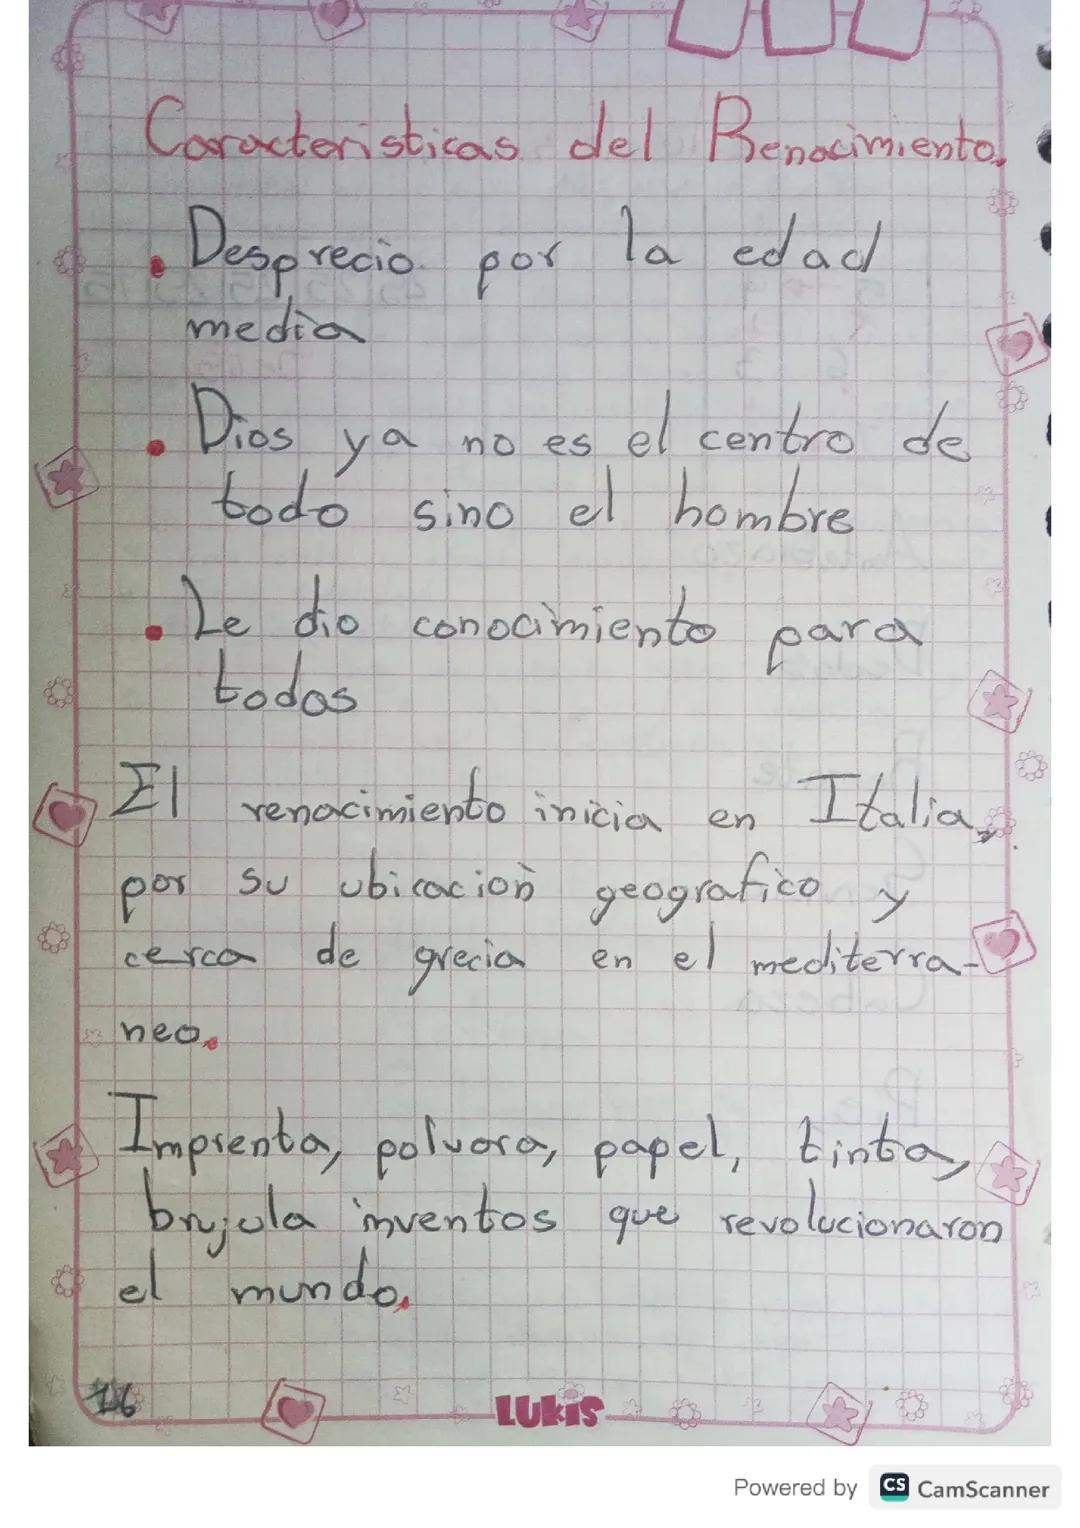 Caracteristicas del Renacimiento.
. Desprecio por la edad
media
. Dios ya no es el centro de
todo sino el hombre
. Le dio conocimiento para
todos
El renacimiento inicia en Italia,
por su ubicación geografico y
cerca de grecia en el mediterra-
neo.
Imprenta, polvora, papel, tinta,
brujula inventos que revolucionaron
el mundo.
16
LUKIS
Powered by CS CamScanner